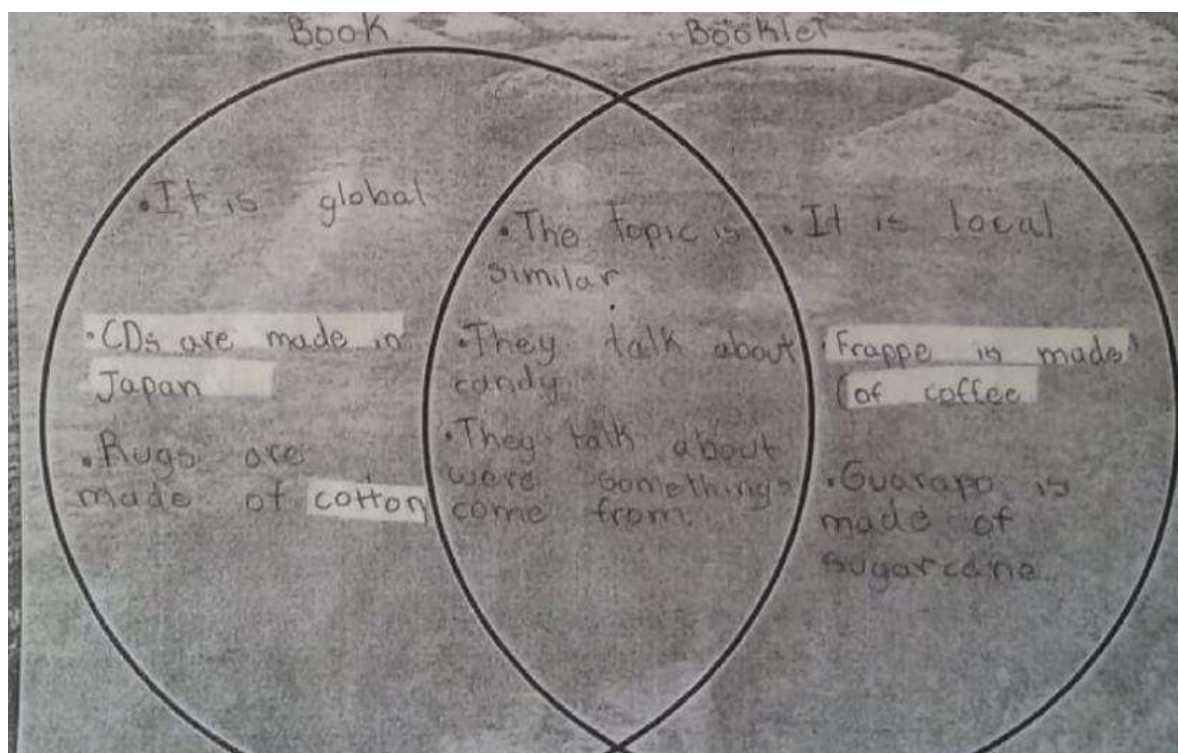 Book
Booklet
• It is global
• CDs are made in
Japan
• Rugs are
made of cotton
• The topic is
similar
• They talk about
candy
• They talk about
were somethings
come from.
• It is local
• Frappe is made
of coffee
• Guarapo is
made of
sugarcane.